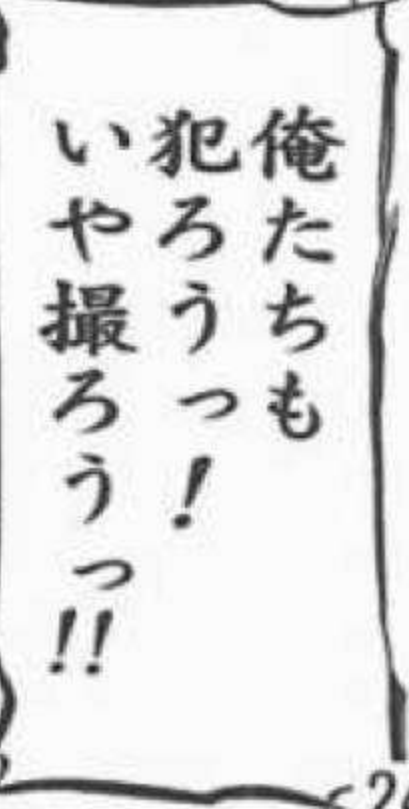 俺たちも
犯ろうっ!
いや撮ろうっ!!